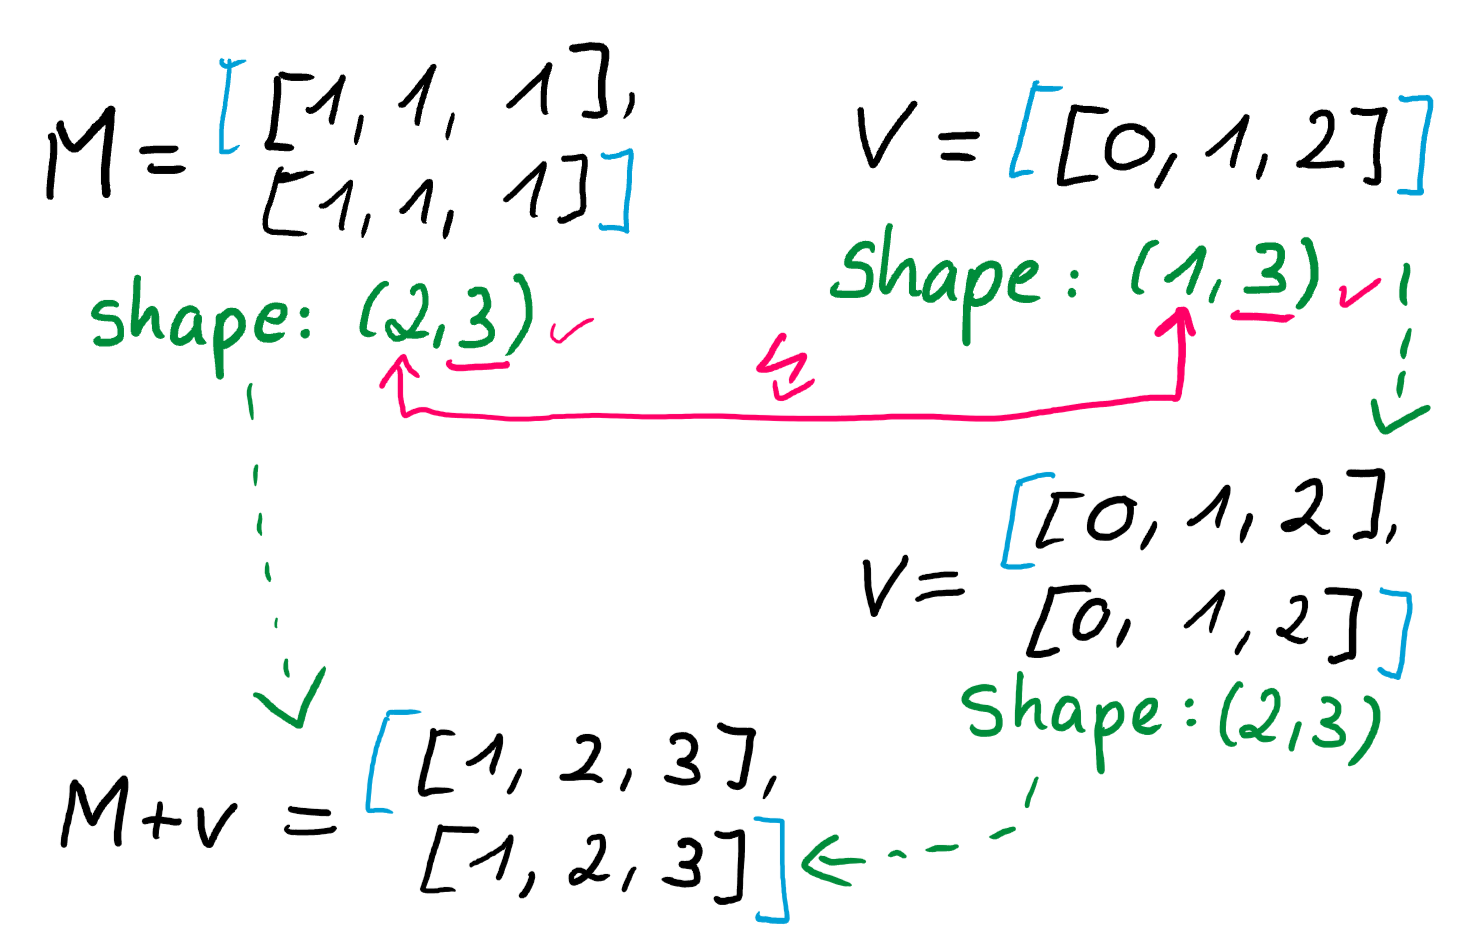 M = [[1, 1, 1],
[1, 1, 1]]
shape: (2,3) ✓
V = [[0, 1, 2]]
Shape: (1,3) ✓
V = [[0, 1, 2],
[0, 1, 2]]
Shape: (2,3)
M+v = [[1, 2, 3],
[1, 2, 3]]